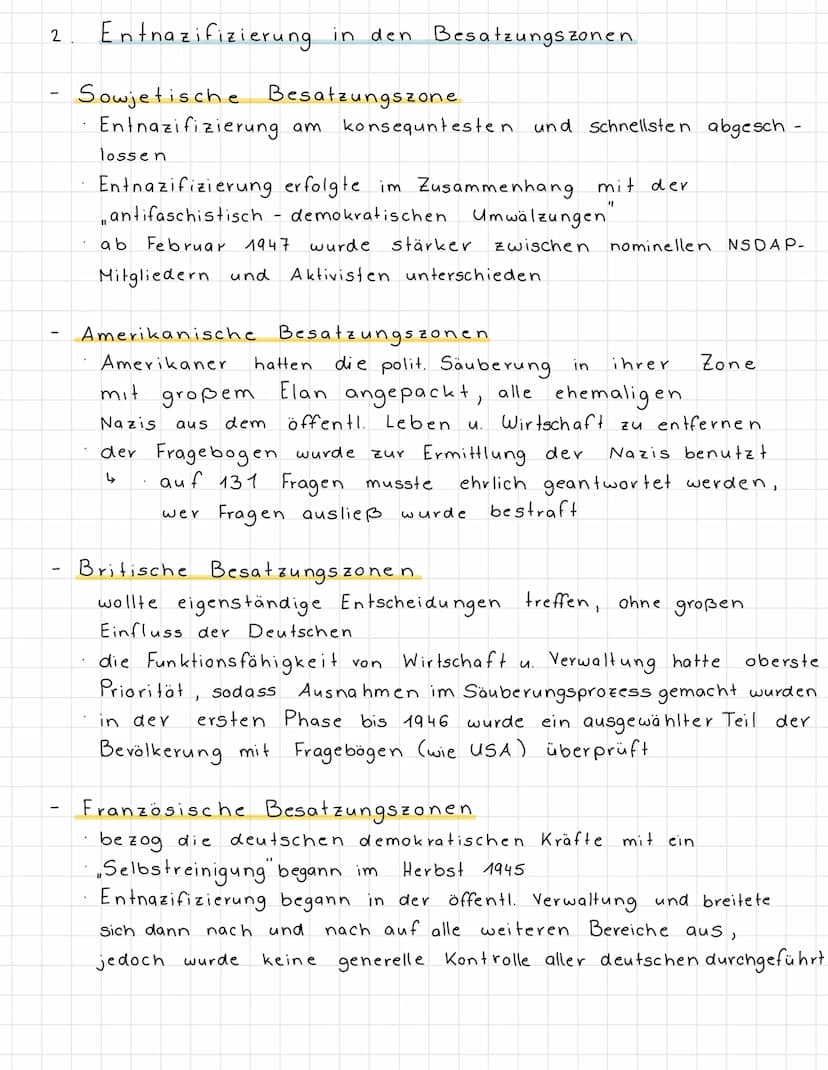 2. Entnazifizierung in den Besatzungszonen
- Sowjetische Besatzungszone
· Entnazifizierung am konsequntesten und schnellsten abgesch -
lossen
· Entnazifizierung erfolgte im Zusammenhang mit der
„antifaschistisch - demokratischen Umwälzungen"
· ab Februar 1947 wurde stärker zwischen nominellen NSDAP-
Mitgliedern und Aktivisten unterschieden
- Amerikanische Besatzungszonen
· Amerikaner hatten die polit. Säuberung in ihrer Zone
mit großem Elan angepackt, alle ehemaligen
Nazis aus dem öffentl. Leben u. Wirtschaft zu entfernen
· der Fragebogen wurde zur Ermittlung der Nazis benutzt
↳ · auf 131 Fragen musste ehrlich geantwortet werden,
wer Fragen ausließ wurde bestraft
- Britische Besatzungszonen
wollte eigenständige Entscheidungen treffen, ohne großen
Einfluss der Deutschen
· die Funktionsfähigkeit von Wirtschaft u. Verwaltung hatte oberste
Priorität, sodass Ausnahmen im Säuberungsprozess gemacht wurden
· in der ersten Phase bis 1946 wurde ein ausgewählter Teil der
Bevölkerung mit Fragebögen (wie USA) überprüft
- Französische Besatzungszonen
· bezog die deutschen demokratischen Kräfte mit ein
· „Selbstreinigung" begann im Herbst 1945
· Entnazifizierung begann in der öffentl. Verwaltung und breitete
sich dann nach und nach auf alle weiteren Bereiche aus,
jedoch wurde keine generelle Kontrolle aller deutschen durchgeführt